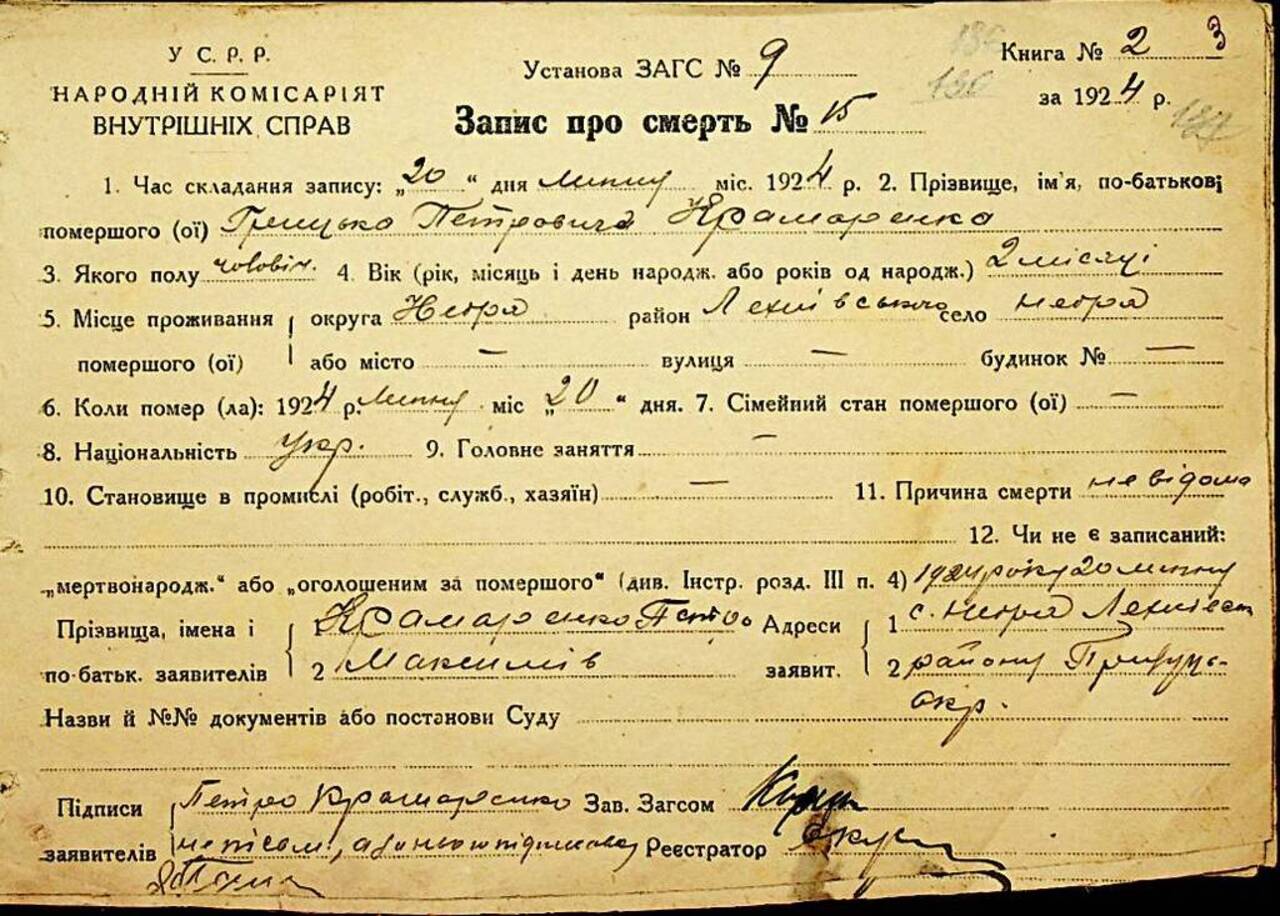 У С. Р. Р.
НАРОДНІЙ КОМІСАРІЯТ
ВНУТРІШНІХ СПРАВ
Установа ЗАГС № 9
Книга № 2 3
186
за 1924 р.
187
Запис про смерть № 15
1. Час складання запису: „20“ дня липня міс. 1924 р. 2. Прізвище, ім'я, по-батькові
помершого (ої) Грицько Петровича Крамаренко
3. Якого полу чоловіч. 4. Вік (рік, місяць і день народж. або років од народж.) 2 місяці
5. Місце проживання округа район село
помершого (ої) або місто — вулиця — будинок № —
6. Коли помер (ла): 1924 р. липня міс „20“ дня. 7. Сімейний стан помершого (ої) —
8. Національність укр. 9. Головне заняття —
10. Становище в промислі (робіт., служб., хазяїн) — 11. Причина смерти невідома
12. Чи не є записаний:
„мертвонародж.“ або „оголошеним за помершого“ (див. Інстр. розд. III п. 4) 1924 року 20 липня
Прізвища, імена і Крамаренко Петро Адреси 1 с.
по-батьк. заявителів 2 Максимів заявит. 2 району
окр.
Назви й №№ документів або постанови Суду
Підписи Петро Крамаренко Зав. Загсом
заявителів Реєстратор